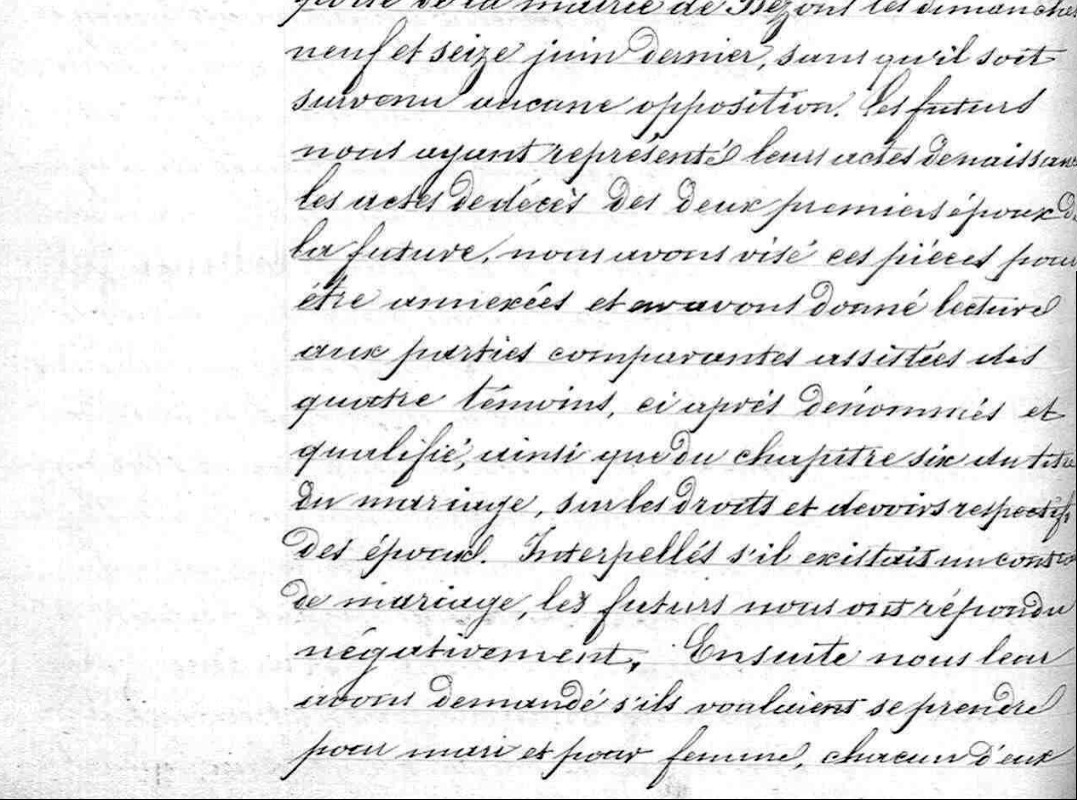 porte de la mairie de Bezons les dimanches
neuf et seize juin dernier, sans qu'il soit
survenu aucune opposition. les futurs
nous ayant représenté leurs actes de naissan
les actes de décès des deux premiers époux de
la future, nous avons visé ces pièces pour
être annexées et en avons donné lecture
aux parties comparantes assistées des
quatre témoins, ci après dénommés et
qualifié, ainsi que du chapitre six du titre
du mariage, sur les droits et devoirs respectifs
des époux. Interpellés s'il existait un contra
de mariage, les futurs nous ont répondu
négativement, Ensuite nous leur
avons demandé s'ils voulaient se prendre
pour mari et pour femme, chacun d'eux